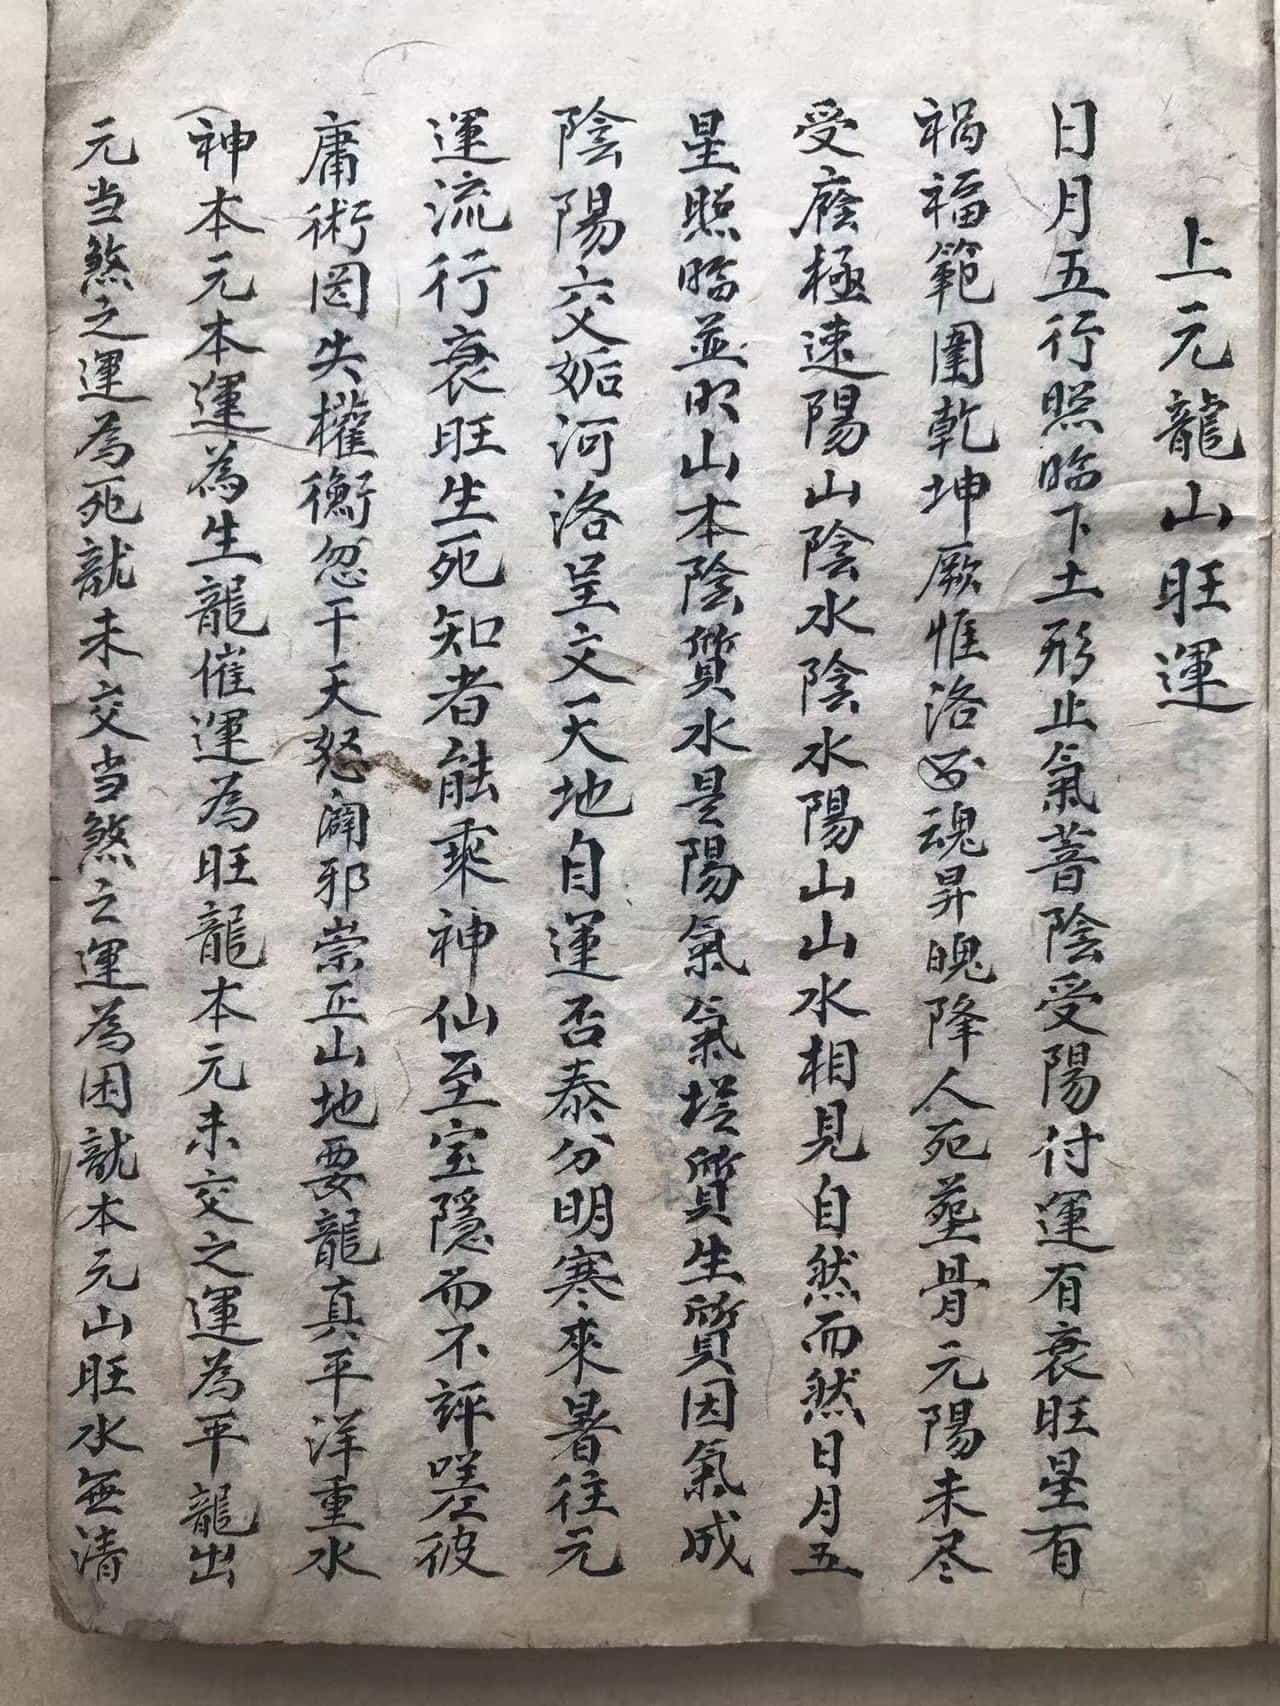 上元龍山旺運
日月五行照臨下土形止氣蓄陰受陽付運有衰旺星有
禍福範圍乾坤厥惟洛書魂昇魄降人死塟骨元陽未尽
受廕極速陽山陰水陰水陽山山水相見自然而然日月五
星照臨並明山本陰質水是陽氣氣塟質生質因氣成
陰陽交姤河洛呈文天地自運否泰分明寒來暑往元
運流行衰旺生死知者能乘神仙至宝隱而不評嗟彼
庸術罔失權衡忽干天怒闢邪崇正山地要龍真平洋重水
神本元本運為生龍催運為旺龍本元未交之運為平龍出
元当煞之運為死龍未交当煞之運為困龍本元山旺水無清